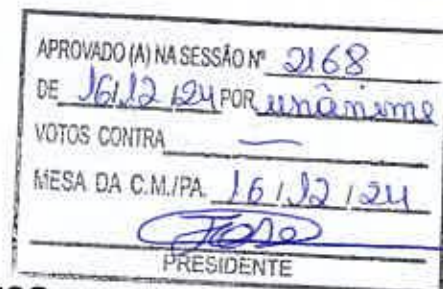 APROVADO (A) NA SESSÃO Nº 2168
DE 16/12/24 POR unânime
VOTOS CONTRA —
MESA DA C.M./PA. 16/12/24
PRESIDENTE